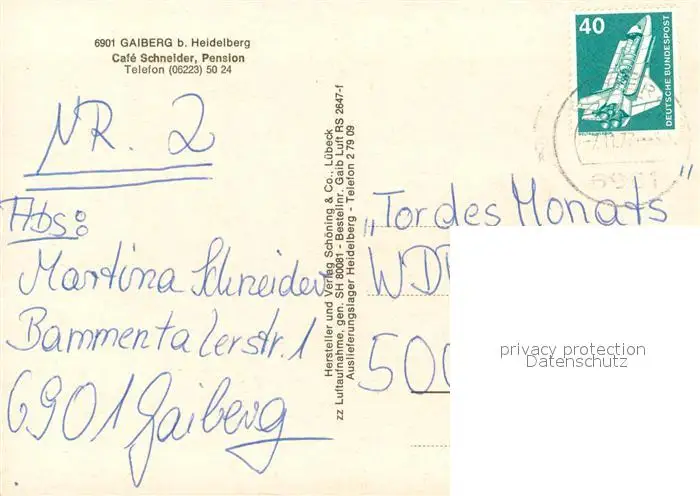 6901 GAIBERG b. Heidelberg
Café Schneider, Pension
Telefon (06223) 50 24
NR. 2
Abs:
Martina Schneider
Bammentalerstr. 1
6901 Gaiberg
Hersteller und Verlag Schöning & Co., Lübeck
zz Luftaufnahme, gen. SH 80081 - Bestellnr. Gaib Luft RS 2647-f
Auslieferungslager Heidelberg - Telefon 2 79 09
40
DEUTSCHE BUNDESPOST
„Tor des Monats"
WD
500
privacy protection
Datenschutz